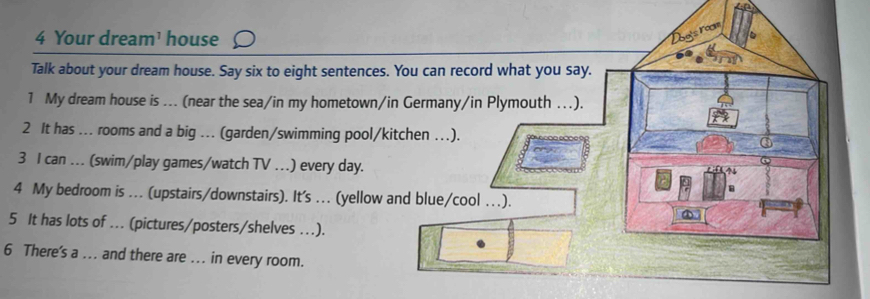 4 Your dream¹ house
Talk about your dream house. Say six to eight sentences. You can record what you say.
1 My dream house is ... (near the sea/in my hometown/in Germany/in Plymouth ...).
2 It has ... rooms and a big ... (garden/swimming pool/kitchen ...).
3 I can ... (swim/play games/watch TV ...) every day.
4 My bedroom is ... (upstairs/downstairs). It's ... (yellow and blue/cool ...).
5 It has lots of ... (pictures/posters/shelves ...).
6 There's a ... and there are ... in every room.
Dog's room